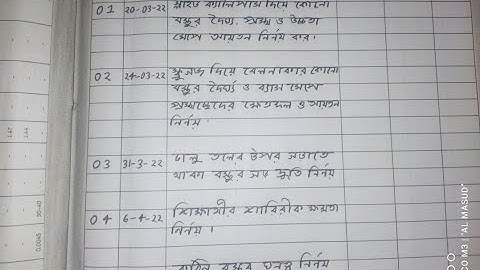 01 20-03-22 স্লাইড ক্যালিপার্স দিয়ে কোনো
বস্তুর দৈর্ঘ্য, প্রস্থ ও উচ্চতা
মেপে আয়তন নির্নয় কর।
02 24-03-22 স্ক্রুগজ দিয়ে বেলনাকার কোনো
বস্তুর দৈর্ঘ্য ও ব্যাস মেপে
প্রস্থচ্ছেদের ক্ষেত্রফল ও আয়তন
নির্নয়।
03 31-3-22 ঢালু তলের উপর গড়াতে
থাকা বস্তুর গড় দ্রুতি নির্নয়
04 6-4-22 শিক্ষার্থীর শারিরীক ক্ষমতা
নির্নয়।
কঠিন বস্তুর ঘনত্ব নির্নয়
CO M3 | "AL MASUD"
30-40
0.0045